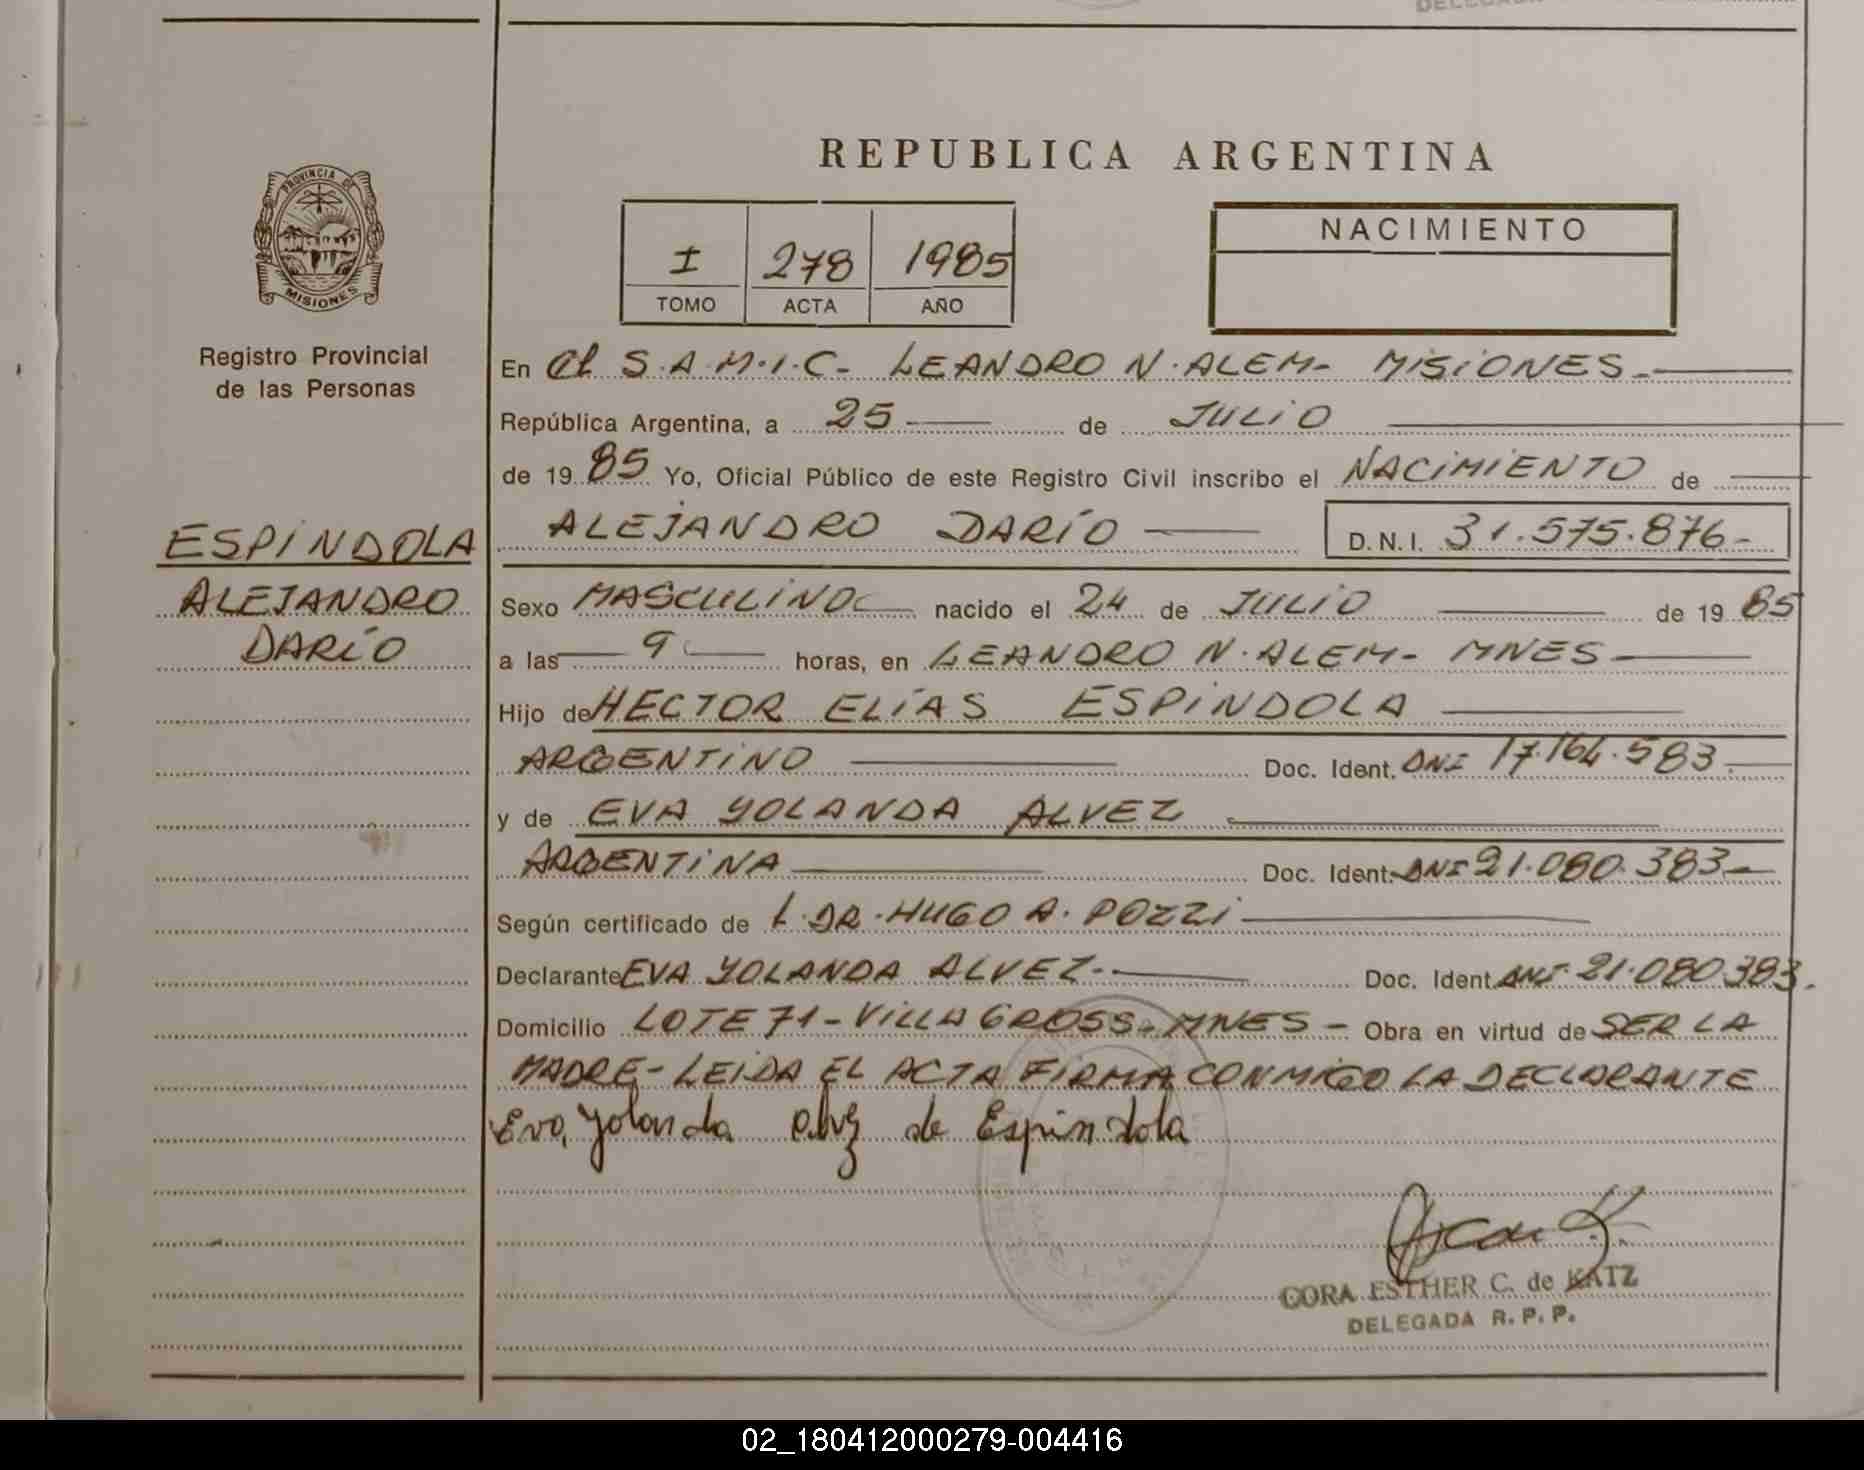 REPUBLICA ARGENTINA
PROVINCIA DE
MISIONES
Registro Provincial
de las Personas
I 278 1985
TOMO ACTA AÑO
NACIMIENTO
ESPÍNDOLA
ALEJANDRO
DARÍO
En el S.A.M.I.C- LEANDRO N. ALEM- MISIONES-
República Argentina, a 25 de JULIO
de 1985 Yo, Oficial Público de este Registro Civil inscribo el NACIMIENTO de
ALEJANDRO DARÍO D.N.I. 31.575.876-
Sexo MASCULINO nacido el 24 de JULIO de 1985
a las 9 horas, en LEANDRO N. ALEM- MNES
Hijo de HECTOR ELÍAS ESPÍNDOLA
ARGENTINO Doc. Ident. DNI 17.164.583-
y de EVA YOLANDA ALVEZ
ARGENTINA Doc. Ident. DNI 21.080.383-
Según certificado de L. DR. HUGO A. POZZI
Declarante EVA YOLANDA ALVEZ- Doc. Ident. DNI 21.080.383.
Domicilio LOTE 71- VILLA GROSS- MNES - Obra en virtud de SER LA
MADRE- LEIDA EL ACTA FIRMA CONMIGO LA DECLARANTE
Eva Yolanda Alvez de Espindola
CORA ESTHER C. de KATZ
DELEGADA R. P. P.
02_180412000279-004416